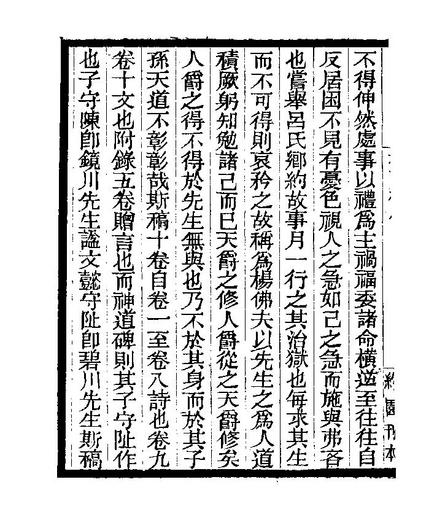 不得伸然處事以禮爲主禍福委諸命橫逆至往往自
反居困不見有憂色視人之急如己之急而施與弗吝
也嘗舉呂氏鄉約故事月一行之其治獄也每求其生
而不可得則哀矜之故稱爲楊佛夫以先生之爲人道
積厥躬知勉諸己而已天爵之修人爵從之天爵修矣
人爵之得不得於先生無與也乃不於其身而於其子
孫天道不彰彰哉斯稿十卷自卷一至卷八詩也卷九
卷十文也附錄五卷贈言也而神道碑則其子守阯作
也子守陳卽鏡川先生謚文懿守阯卽碧川先生斯稿
約園刊本